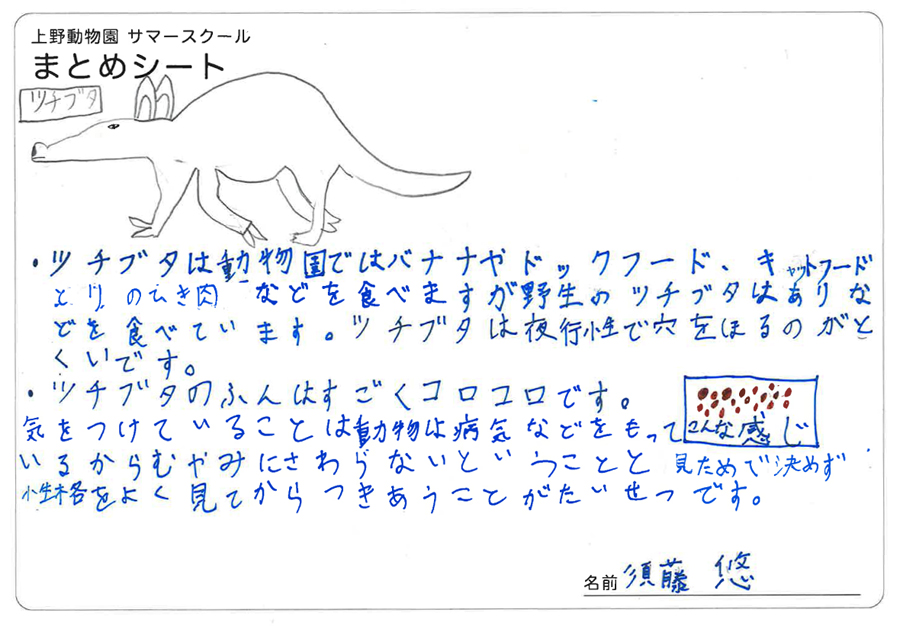 上野動物園 サマースクール
まとめシート
ツチブタ
・ツチブタは動物園ではバナナやドックフード、キャットフード
とりのひき肉 などを食べますが野生のツチブタはありな
どを食べています。ツチブタは夜行性で穴をほるのがと
くいです。
・ツチブタのふんはすごくコロコロです。
こんな感じ
気をつけていることは動物は病気などをもって
いるからむやみにさわらないということと見ためで決めず
性格をよく見てからつきあうことがたいせつです。
名前 須藤 悠